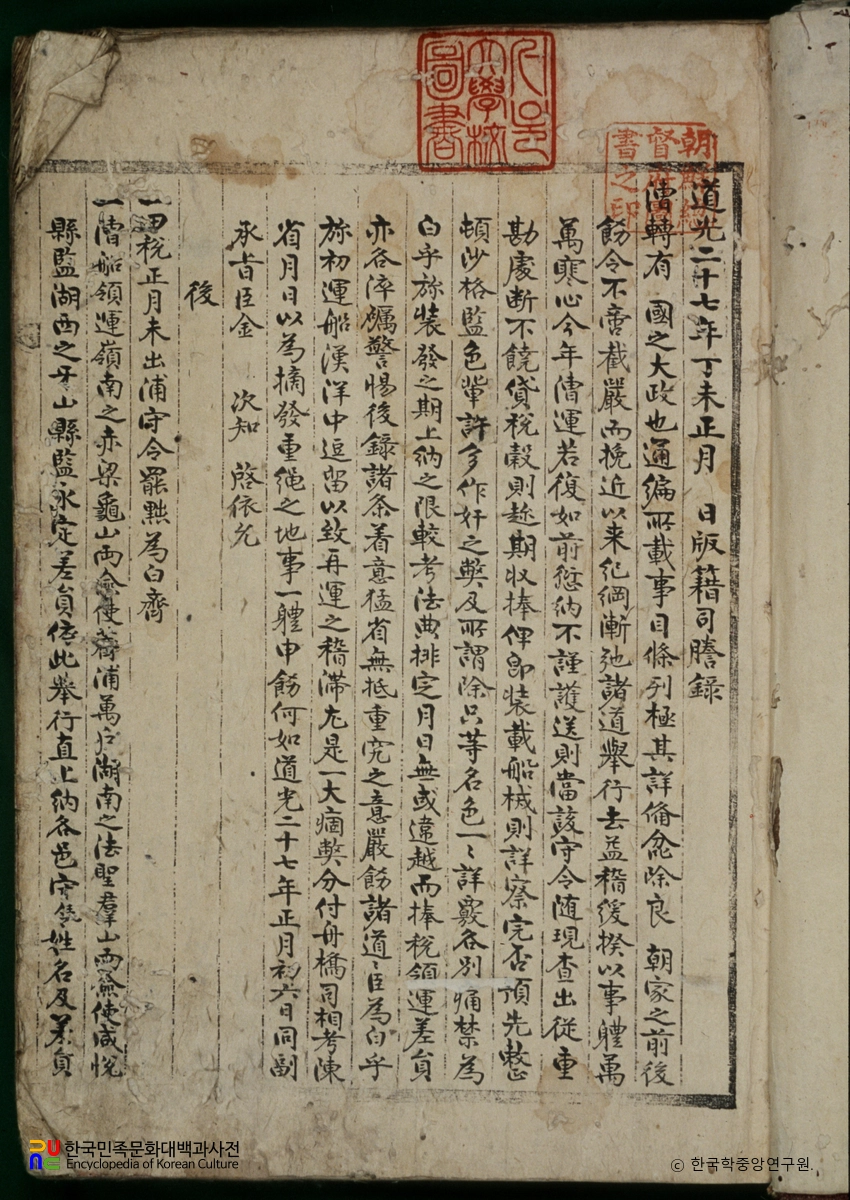 道光二十七年丁未正月 日版籍司謄錄
漕轉有 國之大政也通編所載事目條列極其詳備忿除良 朝家之前後
飭令不啻截嚴而挽近以来紀綱漸弛諸道舉行去益稽緩揆以事體萬
萬寒心今年漕運若復如前愆納不謹護送則當該守令随現查出從重
勘處断不饒貸稅穀則趁期收捧俾即装載船械則詳察完否預先整
頓沙格監色輩許多作奸之獘及所謂除只等名色一〻詳覈各別痛禁為
白乎旀装發之期上納之限較考法典排定月日無或違越而捧稅領運差員
亦各淬礪警惕後錄諸条着意猛省無抵重究之意嚴飭諸道〻臣為白乎
旀初運船漢洋中逗留以致再運之稽滞尤是一大痼獘分付舟橋司相考陳
省月日以為摘發重绳之地事一軆申飭何如道光二十七年正月初六日同副
承旨臣金 次知 啓依允
後
一田稅正月未出浦守令罷黜為白齊
一漕船領運嶺南之赤梁龜山兩僉使薺浦萬户湖南之法聖羣山兩僉使咸悅
縣監湖西之牙山縣監永定差員依此舉行直上納各邑守令姓名及差員
大學校
圖書
朝
督府
書之印
한국민족문화대백과사전
Encyclopedia of Korean Culture
ⓒ 한국학중앙연구원.